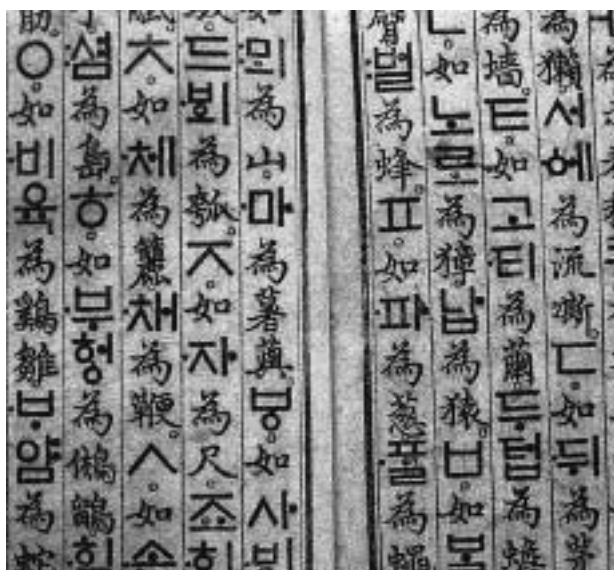 為獺。서·ᅌᅦ為流凘。ㄷ。如·뒤為茅
為墻。ㅌ。如고·티為繭。두텁為蟾
ㄴ。如노로為獐。납為猿。ㅂ。如ᄇᆞᆯ
臂。:벌為蜂。ㅍ。如·파為葱。·ᄑᆞᆯ為蠅
如:뫼為山。·마為薯藇。ㅸ。如사·ᄫᅵ
드·ᄫᅴ為瓠。ㅈ。如·자為尺。죠·ᄒᆡ
ㅊ。如·체為籭。·채為鞭。ㅅ。如·손
:셤為島。ㅎ。如·부헝為鵂鶹。·힘
筋。ㅇ。如·비육為鷄雛。·ᄇᆞ얌為蛇